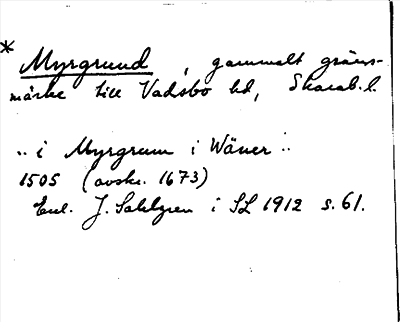 * Myrgrund, gammalt gräns-
märke till Vadsbo hd, Skarab. l.
.. i Myrgrum i Wäner ..
1505 (avskr. 1673)
Enl. J. Sahlgren i SL 1912 s. 61.